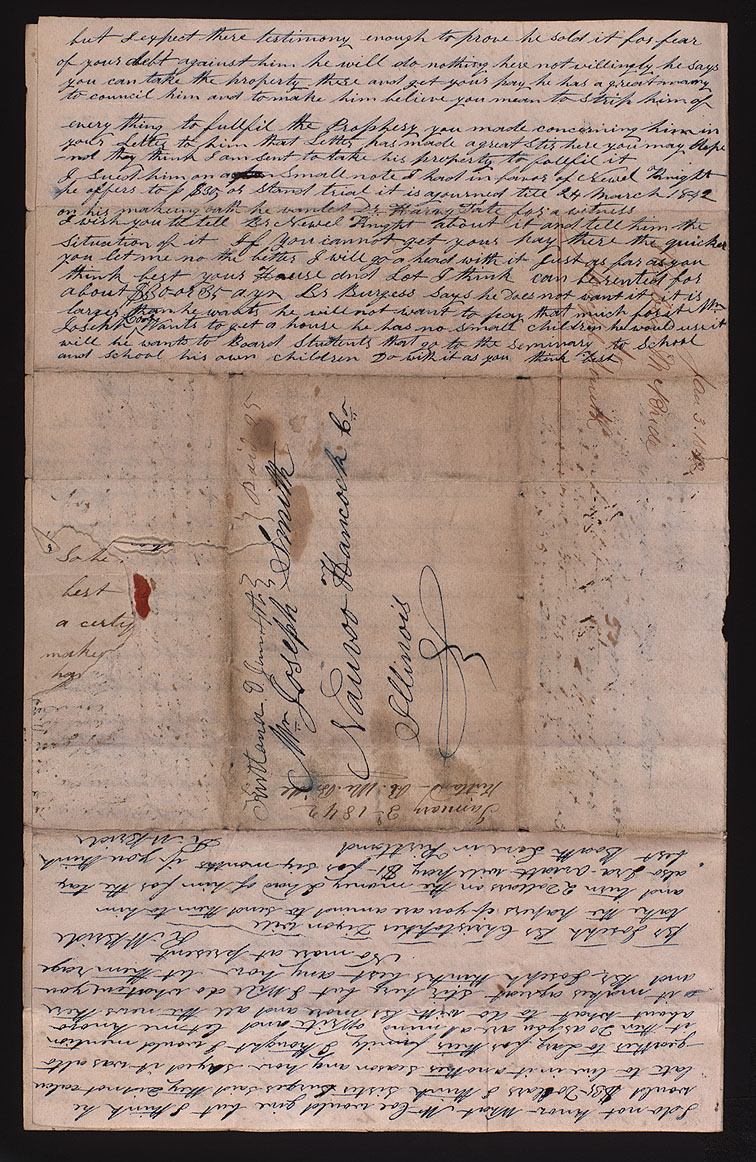 but I expect there testimony enough to prove he sold it for fear
of your debt against him he will do nothing here not willingly he says
you can take the property there and get your pay he has a great many
to council him and to make him believe you mean to strip him of
every thing to fullfil the Prophesy you made concerning him in
your Letter to him that Letter has made a great Stir here you may Hope
not they think I am sent to take his property to fullfil it
I sued him on a small note I had in favor of Newel Knight
he offers to $30 or stand trial it is ajourned till 24 March 1842
on his making oath he wanted Harvy Tate for a witness
I wish you to tell Br Newel Knight about it and tell him the
situation of it If you cannot get your pay there the quicker
you let me no the better I will go a head with it Just as far as you
think best your House and Lot I think can be rented for
about $30 or 35 a yr Br Burgess says he Does not want it it is
larger than he wants he will not want to pay that much for it Mr
Joseph Coe Wants to get a house he has no small children he would use it
will he wants to Board Students that go to the Seminary to School
and School his own children Do with it as you think Best
Jan 3. 1842
McBride
Kirtland O
Paid 25
Mr. Joseph Smith
Nauvoo Hancock Co.
Illinois
So he
best
a certif
maker
has
January 3 1842
Kirtland R. McBride
I do not know What Mr Coe would give but I think he
would $35 Dollars I think Sister Burges said they Did not calcu
late to live in it another season any how Sayed it was alto
geather to Large for their family I thought I would mention
it then Do as you are a mind and let me know
about what to do with it more and all the news there
it makes a great stir here but I Will do whatever you
and Br. Joseph thinks best any how let them rage
No more at present
R McBride
Br Joseph Br Christopher Dixon will
take the papers if you are a mind to send them to him
and turn 2 Dollars on the money I had of him for the tax
also Ira will pay $1 for Six months if you think
best Booth Live in Kirtland
R McBride